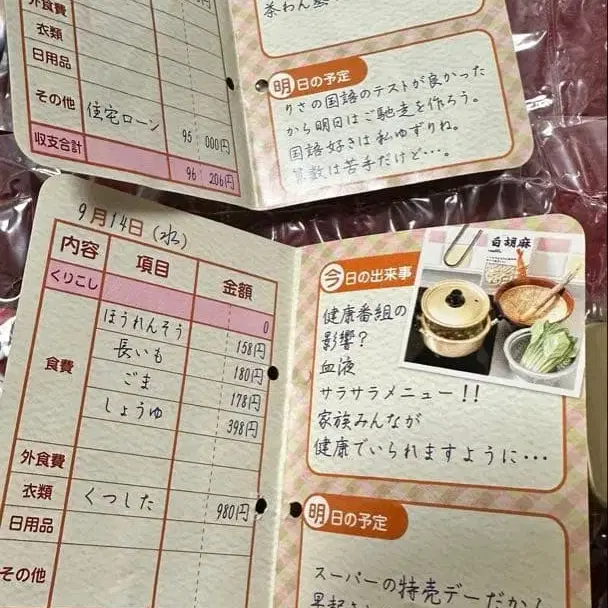 外食費
衣類
日用品
その他 住宅ローン 95 000円
収支合計 96 206円
茶わん蒸
明日の予定
りさの国語のテストが良かった
から明日はご馳走を作ろう。
国語好きは私ゆずりね。
算数は苦手だけど…。
9月14日(水)
内容 項目 金額
くりこし 0
食費
ほうれんそう 158円
長いも 180円
ごま 178円
しょうゆ 398円
外食費
衣類 くつした 980円
日用品
その他
今日の出来事
白胡麻
健康番組の
影響?
血液
サラサラメニュー!!
家族みんなが
健康でいられますように・・・
明日の予定
スーパーの特売デーだから
早起き